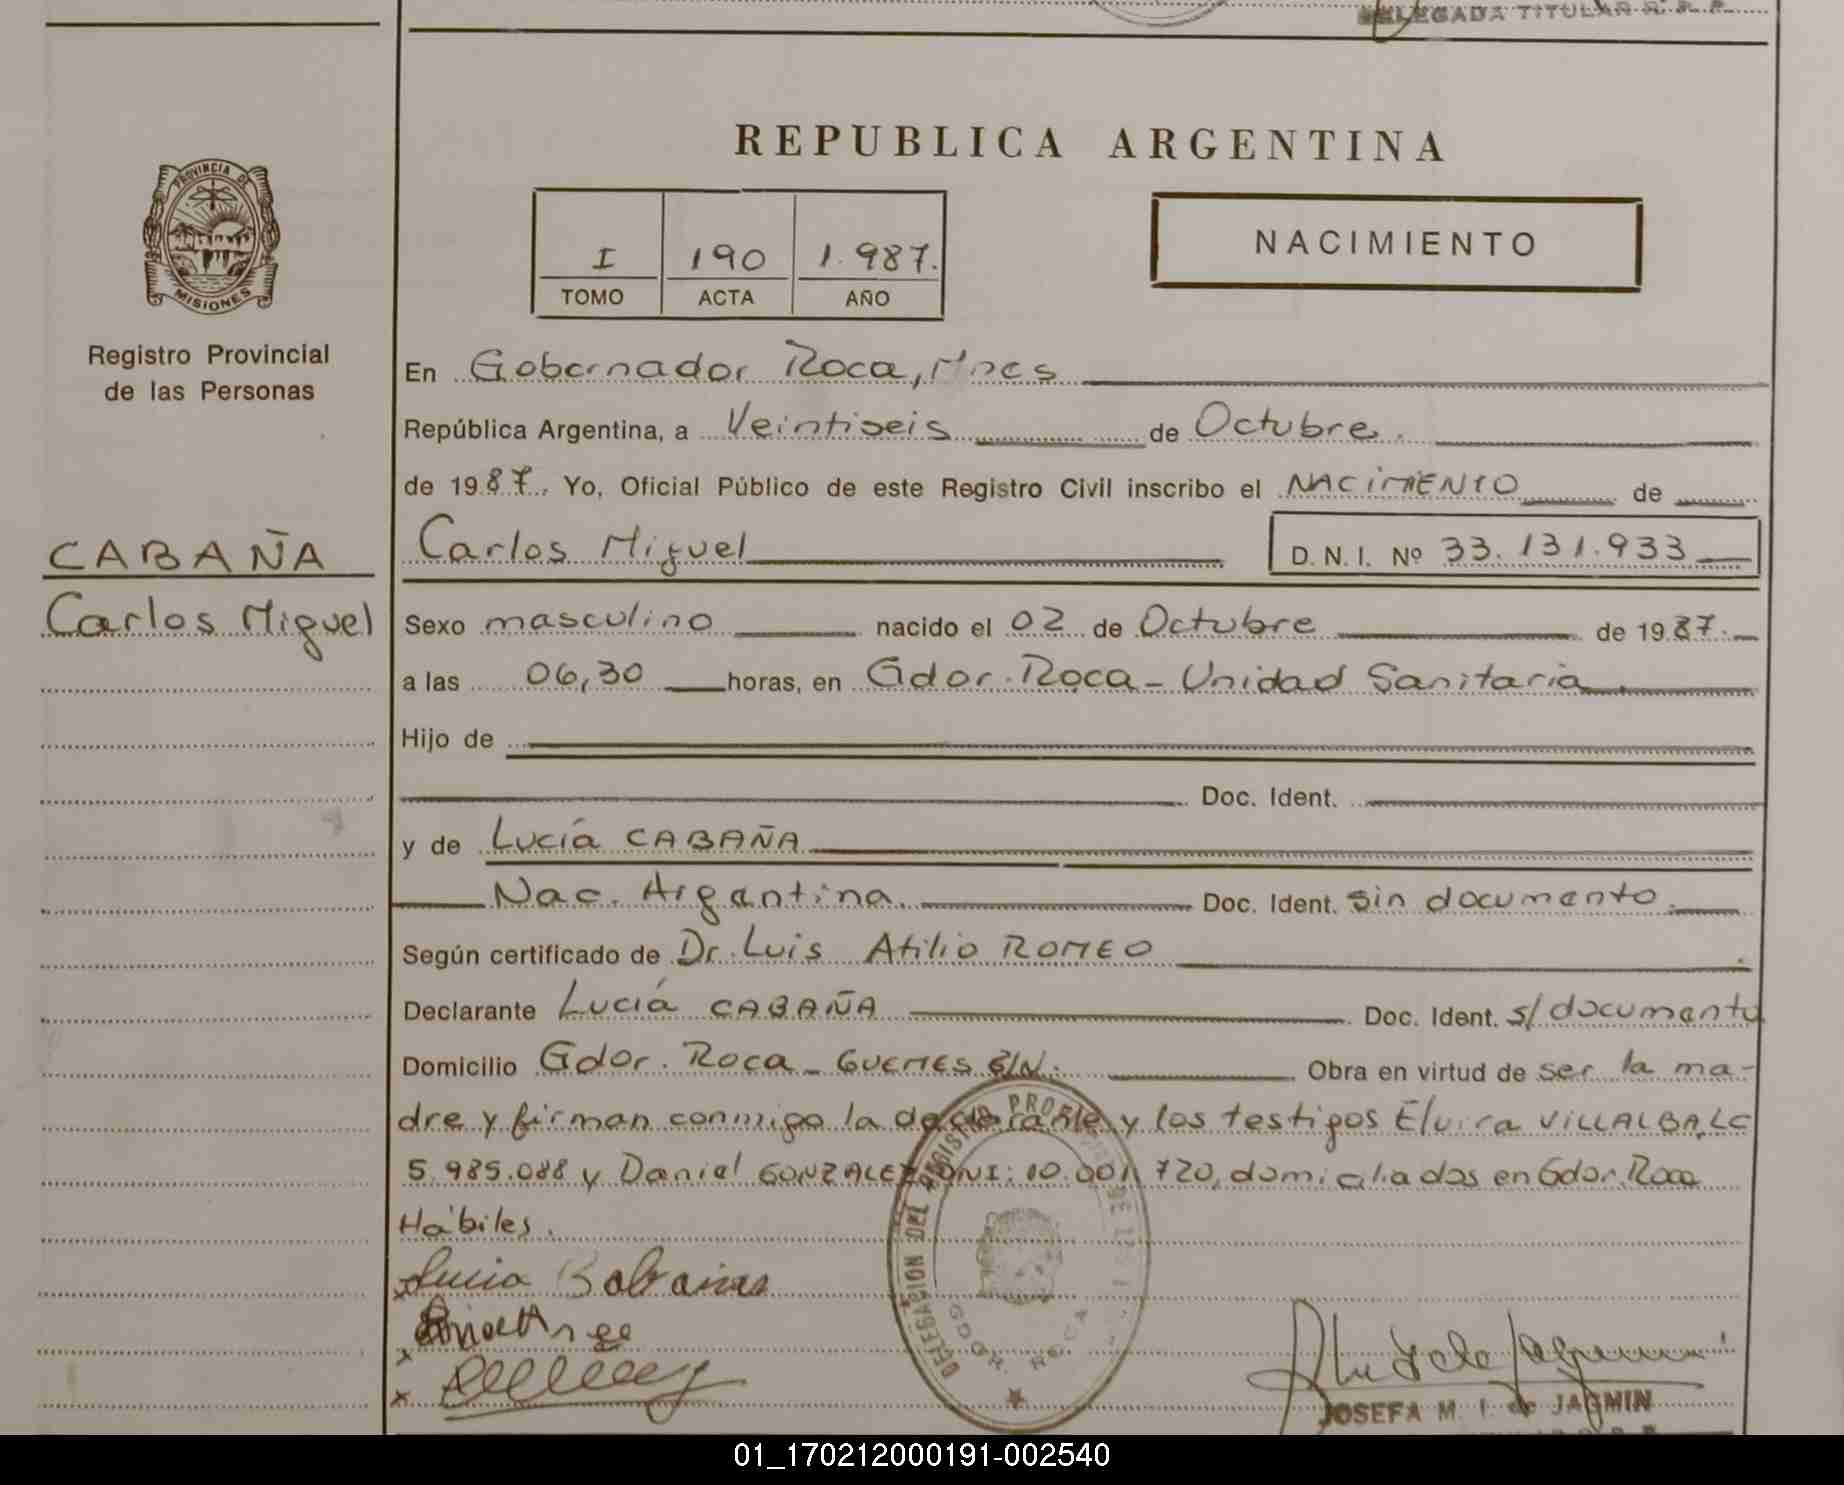 DELEGADA TITULAR R. P. P.
REPUBLICA ARGENTINA
PROVINCIA DE
MISIONES
Registro Provincial
de las Personas
I 190 1.987.
TOMO ACTA AÑO
NACIMIENTO
En Gobernador Roca, Mnes
República Argentina, a Veintiseis de Octubre.
de 1987. Yo, Oficial Público de este Registro Civil inscribo el NACIMIENTO de
CABAÑA
Carlos Miguel
Carlos Miguel D. N. I. Nº 33.131.933
Sexo masculino nacido el 02 de Octubre de 1987.
a las 06,30 horas, en Gdor. Roca - Unidad Sanitaria.
Hijo de
Doc. Ident.
y de Lucía CABAÑA
Nac. Argentina. Doc. Ident. sin documento.
Según certificado de Dr. Luis Atilio ROMEO
Declarante Lucía CABAÑA Doc. Ident. s/documento
Domicilio Gdor. Roca - GUEMES S/N. Obra en virtud de ser la ma-
dre y firman conmigo la declarante y los testigos Elvira VILLALBA, LC
5.985.088 y Daniel GONZALEZ DNI: 10.001.720, domiciliados en Gdor. Roca
Hábiles.
DELEGACION DEL REGISTRO
GDOR. ROCA
JOSEFA M. I. de JAGMIN
01_170212000191-002540